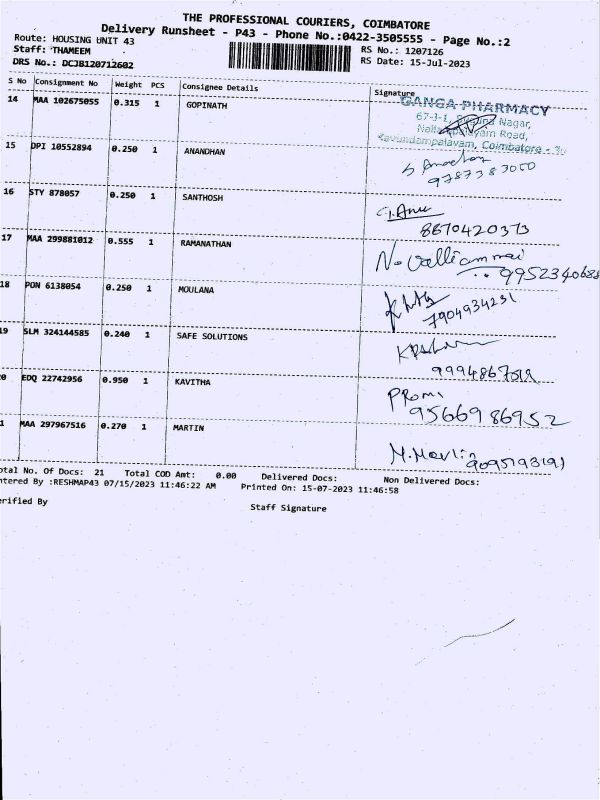 THE PROFESSIONAL COURIERS, COIMBATORE
Delivery Runsheet - P43 - Phone No.:0422-3505555 - Page No.:2
Route: HOUSING UNIT 43
RS No.: 1207126
Staff: THAMEEM
RS Date: 15-Jul-2023
DRS No.: DCJB120712602
S No Consignment No Weight PCS Consignee Details Signature
14 MAA 102675055 0.315 1 GOPINATH
GANGA PHARMACY
67-J-1, Nagar,
Road,
Kavundampalayam, Coimbatore - 30
15 DPI 10552894 0.250 1 ANANDHAN
9787383000
16 STY 878057 0.250 1 SANTHOSH
8870420373
17 MAA 299881012 0.555 1 RAMANATHAN
N. Valliammai
9952340688
18 PON 6138054 0.250 1 MOULANA
7904934231
19 SLM 324144585 0.240 1 SAFE SOLUTIONS
0 EDQ 22742956 0.950 1 KAVITHA
9566986952
1 MAA 297967516 0.270 1 MARTIN
otal No. Of Docs: 21 Total COD Amt: 0.00 Delivered Docs: Non Delivered Docs:
ntered By :RESHMAP43 07/15/2023 11:46:22 AM Printed On: 15-07-2023 11:46:58
erified By
Staff Signature